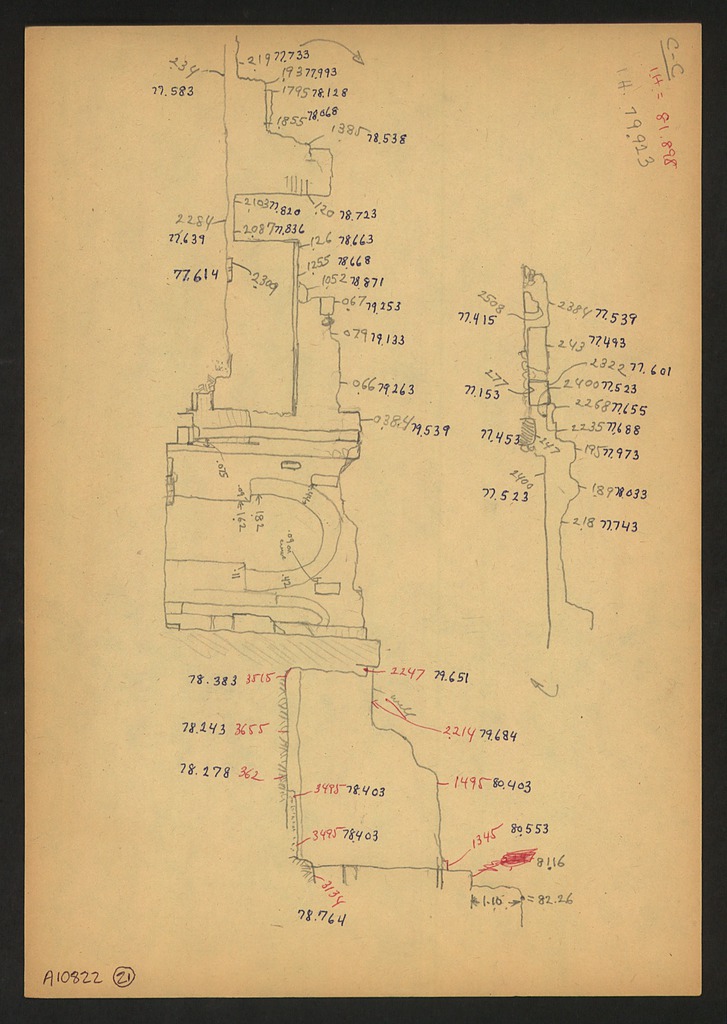 C-C
I.H. = 81.898
I.H. 79.923
234
77.583
219 77.733
193 77.993
1795 78.128
1855 78.068
1385 78.538
2103 77.820
120 78.723
2284
77.639
2087 77.836
126 78.663
1255 78.668
77.614
2309
1052 78.871
067 79.253
079 79.133
066 79.263
0384 79.539
2508
77.415
2384 77.539
243 77.493
2322 77.601
277
77.153
2400 77.523
2268 77.655
2235 77.688
77.453
247
195 77.973
2400
77.523
189 78.033
218 77.743
.075
.162
.182
.11
.42
78.383 3515
2247 79.651
78.243 3655
2214 79.684
78.278 362
3495 78.403
1495 80.403
3495 78.403
1345
80.553
81.16
3134
78.764
1.10 = 82.26
A10822 21